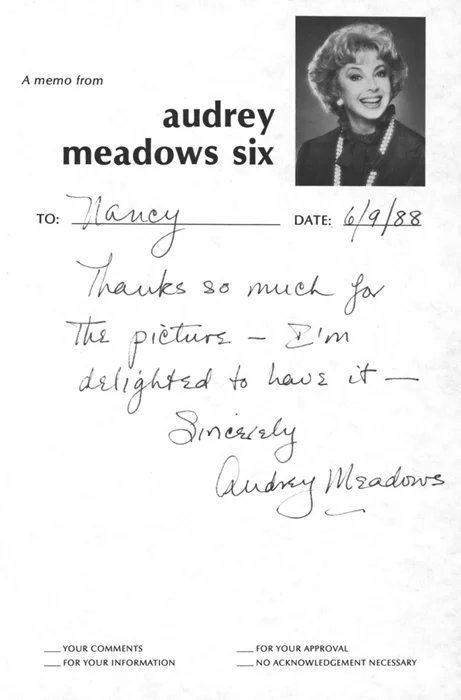 A memo from
audrey
meadows six
TO: Nancy DATE: 6/9/88
Thanks so much for
the picture — I'm
delighted to have it —
Sincerely
Audrey Meadows
___ YOUR COMMENTS ___ FOR YOUR APPROVAL
___ FOR YOUR INFORMATION ___ NO ACKNOWLEDGEMENT NECESSARY